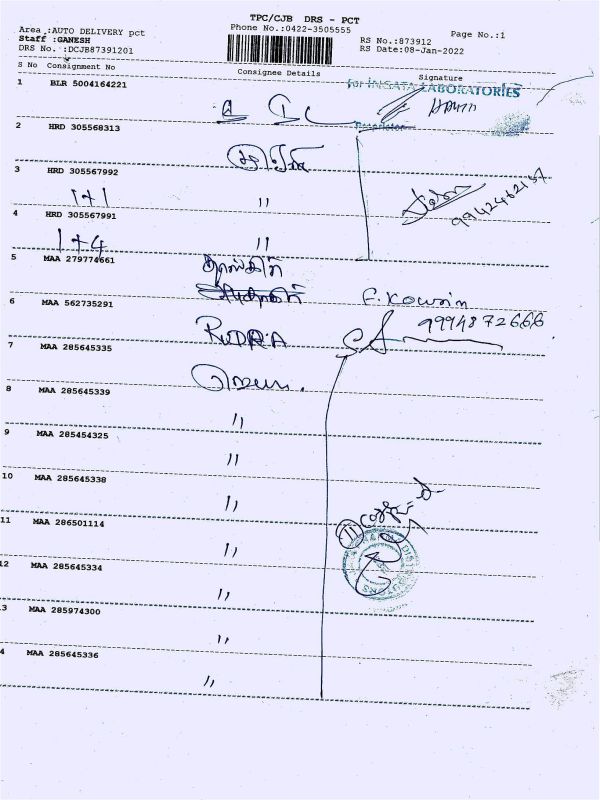 TPC/CJB DRS - PCT
Area :AUTO DELIVERY pct Phone No.:0422-3505555 Page No.:1
Staff :GANESH RS No.:873912
DRS No. :DCJB87391201 RS Date:08-Jan-2022
S No Consignment No Consignee Details Signature
1 BLR 5004164221
for INSATA LABORATORIES
2 HRD 305568313
3 HRD 305567992
1+1 〃 9942462187
4 HRD 305567991
1+4 〃
5 MAA 279774661
6 MAA 562735291 F. Kowsin
RUDRA 9994872666
7 MAA 285645335
8 MAA 285645339
〃
9 MAA 285454325
〃
10 MAA 285645338
〃
11 MAA 286501114
〃 11
12 MAA 285645334
〃
3 MAA 285974300
〃
4 MAA 285645336
〃